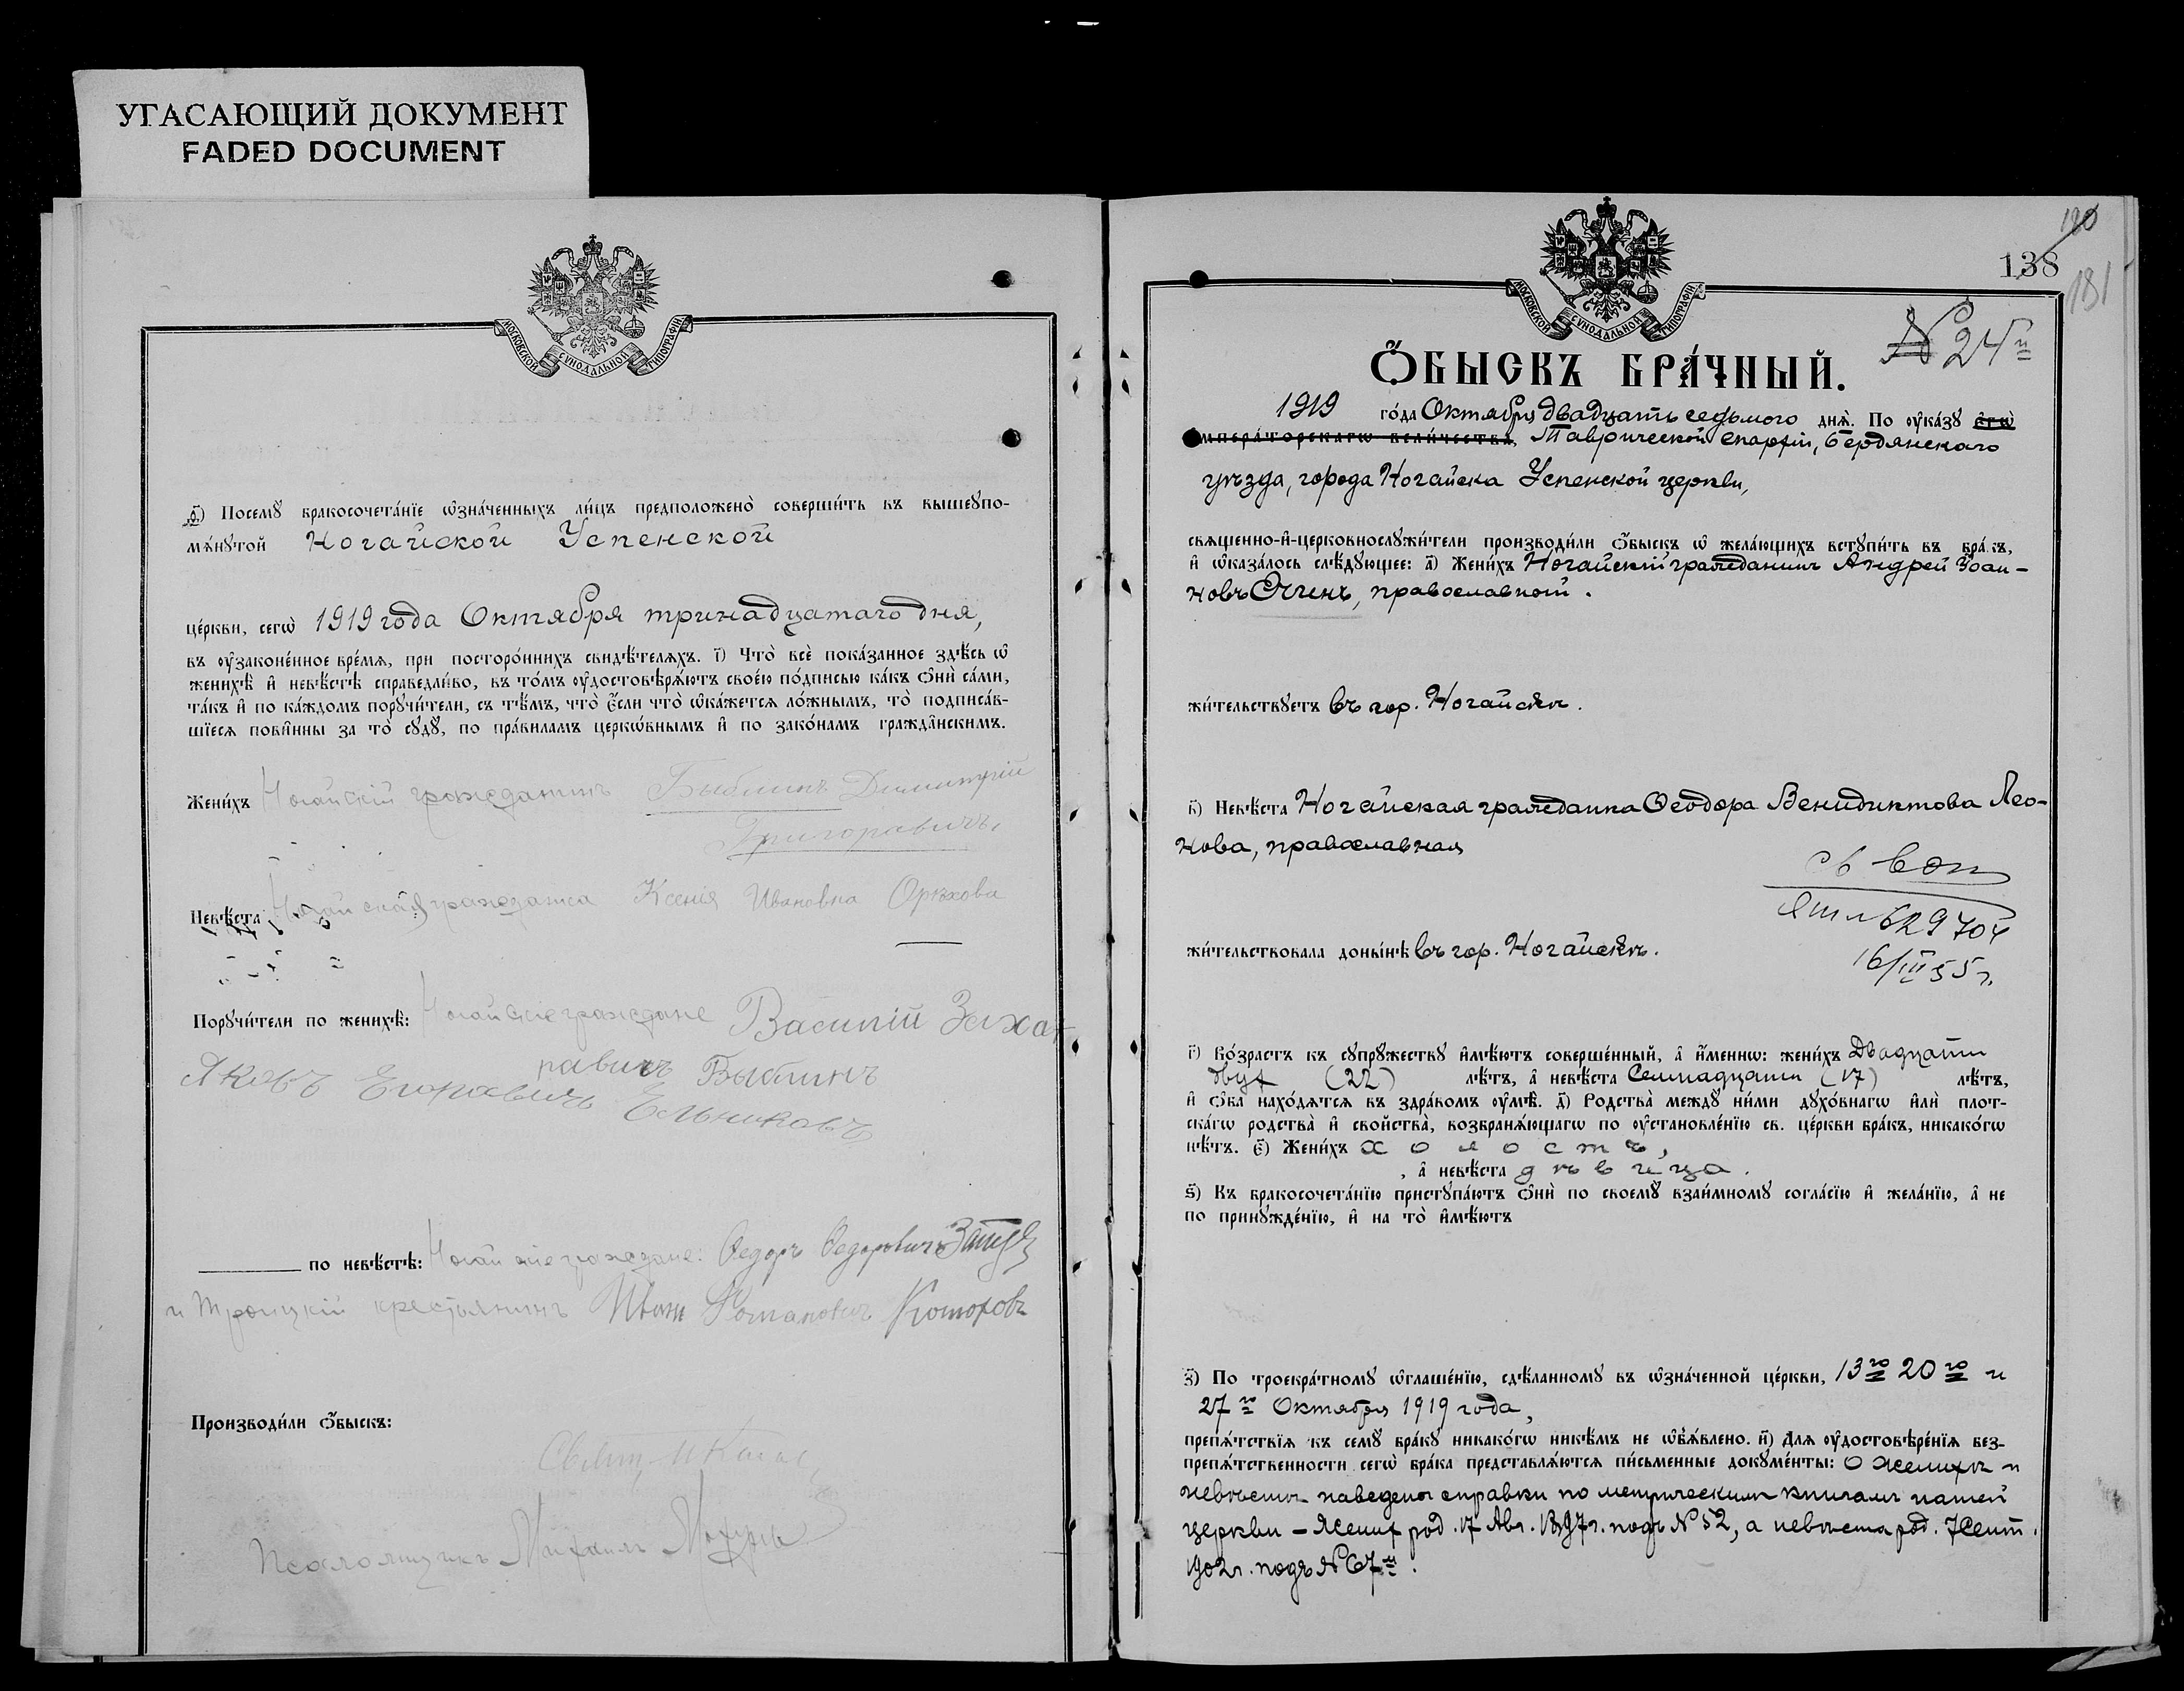 УГАСАЮЩИЙ ДОКУМЕНТ
FADED DOCUMENT
МОСКОВСКОЙ СѴНОДАЛЬНОЙ ТИПОГРАФІИ
ѳ҃) Посемꙋ бракосочета́нїе ѡ҆зна́ченныхъ ли́цъ предположено̀ соверши́ть въ вышеꙋпо-
мѧ́нꙋтой Ногайской Успенской
це́ркви, сегѡ̀ 1919 года Октября тринадцатаго дня,
въ ᲂу҆законе́нное вре́мѧ, при посторо́ннихъ свидѣ́телѧхъ. і҃) Что̀ всѐ пока́занное здѣ́сь ѡ҆
женихѣ̀ и҆ невѣ́стѣ справедли́во, въ то́мъ ᲂу҆достовѣрѧ́ютъ свое́ю по́дписью ка́къ ѻ҆нѝ са́ми,
та́къ и҆ по ка́ждомъ порꙋчи́тели, съ тѣ́мъ, что̀ є҆́сли что̀ ѡ҆ка́жется ло́жнымъ, то̀ подписа́в-
шїесѧ пови́нны за то̀ сꙋдꙋ̀, по пра́виламъ церко́внымъ и҆ по зако́намъ гражда́нскимъ.
Жени́хъ Ногайскій гражданинъ Быблинъ Димитрій
Григоравичъ,
Невѣ́ста Ногайская гражданка Ксенія Ивановна Орѣхова
Порꙋчи́тели по женихѣ̀: Ногайскіе граждане Василій Заха-
равичъ Быблинъ
Яковъ Егоравичъ Ельниковъ
по невѣ́стѣ: Ногайскіе граждане: Ѳедоръ Ѳедоровичъ
и Троицкій крестьянинъ Иванъ Романовичъ
Производи́ли ѻ҆́быскъ:
Псаломщикъ Михаилъ
180
138
181
МОСКОВСКОЙ СѴНОДАЛЬНОЙ ТИПОГРАФІИ
№ 24й
Ѻ҆́БЫСКЪ БРА́ЧНЫЙ.
1919 го́да Октября двадцать седьмого днѧ̀. По ᲂу҆ка́зꙋ є҆гѡ̀
императорскагѡ вели́чества, Таврической епархіи, Бердянскаго
уѣзда, города Ногайска Успенской церкви,
свѧще́нно-и҆-церковнослꙋжи́тели производи́ли ѻ҆́быскъ ѡ҆ жела́ющихъ встꙋпи́ть въ бра́къ,
и҆ ѡ҆каза́лось слѣ́дꙋющее: а҃) Жени́хъ Ногайскій гражданинъ Андрей Іоан-
новъ православной.
жи́тельствꙋетъ въ гор. Ногайскѣ.
в҃) Невѣ́ста Ногайская гражданка Ѳеодора Венидиктова Лео-
нова, православная
16/III 55 г.
жи́тельствовала доны́нѣ въ гор. Ногайскѣ.
г҃) Во́зрастъ къ сꙋпрꙋ́жествꙋ и҆мѣ́ютъ соверше́нный, а҆ и҆́меннѡ: жени́хъ Двадцати
двух (22) лѣ́тъ, а҆ невѣ́ста Семнадцати (17) лѣ́тъ,
и҆ ѻ҆́ба нахо́дѧтсѧ въ здра́вомъ ᲂу҆мѣ̀. д҃) Родства̀ междꙋ ни́ми дꙋхо́внагѡ и҆лѝ плот-
ска́гѡ родства̀ и҆ свойства̀, возбранѧ́ющагѡ по ᲂу҆становле́нїю св. це́ркви бра́къ, никако́гѡ
нѣ́тъ. є҃) Жени́хъ холостъ,
, а҆ невѣ́ста дѣвица.
ѕ҃) Къ бракосочета́нїю пристꙋпа́ютъ ѻ҆нѝ по своемꙋ̀ взаи́мномꙋ согла́сїю и҆ жела́нїю, а҆ не
по принꙋжде́нїю, и҆ на то̀ и҆мѣ́ютъ
з҃) По троекра́тномꙋ ѡ҆глаше́нїю, сдѣ́ланномꙋ въ ѡ҆зна́ченной це́ркви, 13го 20го и
27го Октября 1919 года,
препѧ́тствїѧ къ семꙋ̀ бра́кꙋ никако́гѡ никѣ́мъ не ѡ҆б̾ѧ́влено. и҃) Длѧ ᲂу҆достовѣре́нїѧ без-
препѧ́тственности сегѡ̀ бра́ка представлѧ́ютсѧ пи́сьменные докꙋме́нты: О женихѣ и
невѣстѣ наведены справки по метрическимъ книгамъ нашей
церкви – Жених род. 17 Авг. 1897г. подъ № 52, а невѣста род. 7 Сент.
1902г. подъ № 67м.